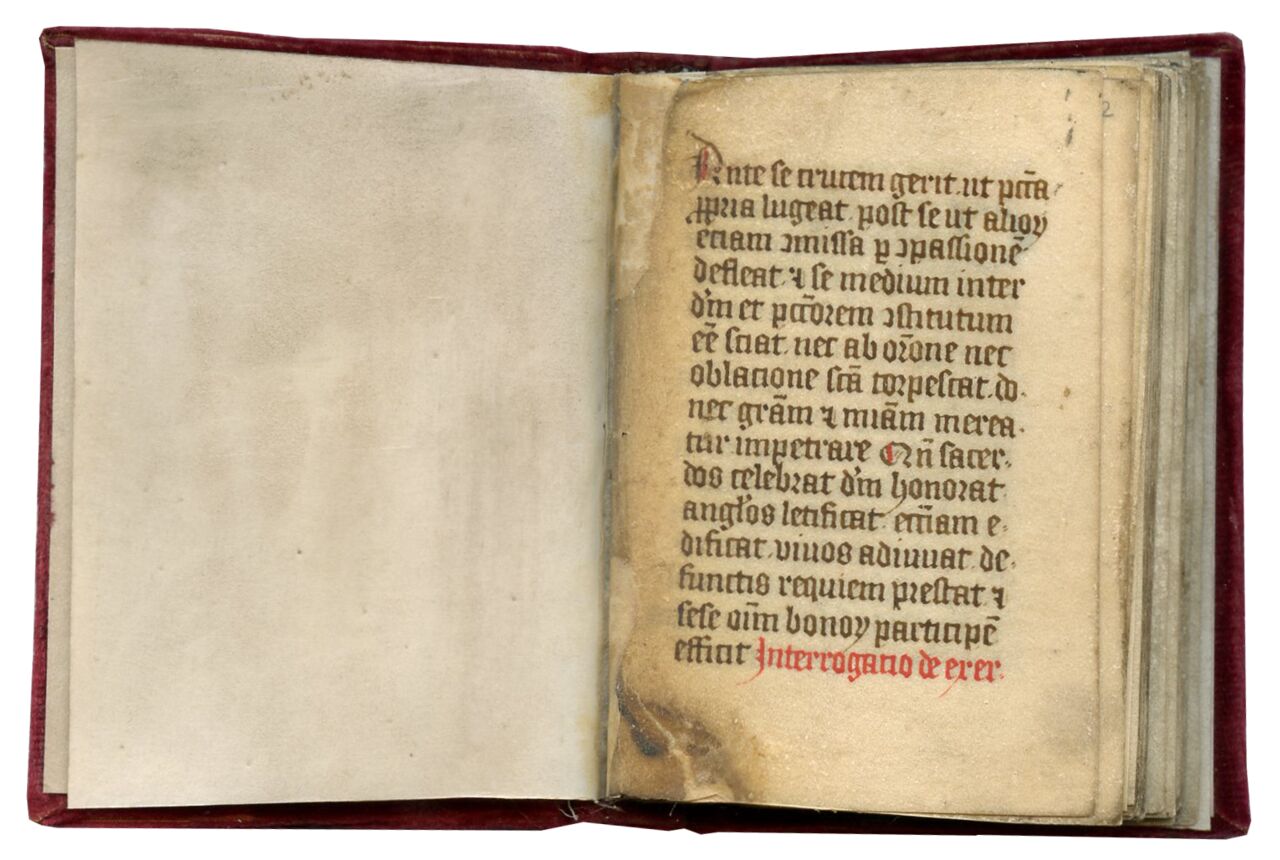 2
Ante se crucem gerit. ut pct̄a
ꝓpria lugeat. post se ut alioꝝ
etiam ↄmissa ꝑ ↄpassionē
defleat. ⁊ se medium inter
dn̄m et pct̄orem ↄstitutum
eē sciat. nec ab or̄one nec
oblatione scā torpescat. do-
nec grām ⁊ miām merea-
tur impetrare Qn̄ sacer-
dos celebrat dn̄m honorat
angl̓os letificat. eccl̄iam e-
dificat. viuos adiuuat. de-
functis requiem prestat ⁊
sese oīm bonoꝝ participē
efficit Interrogatio de exer-